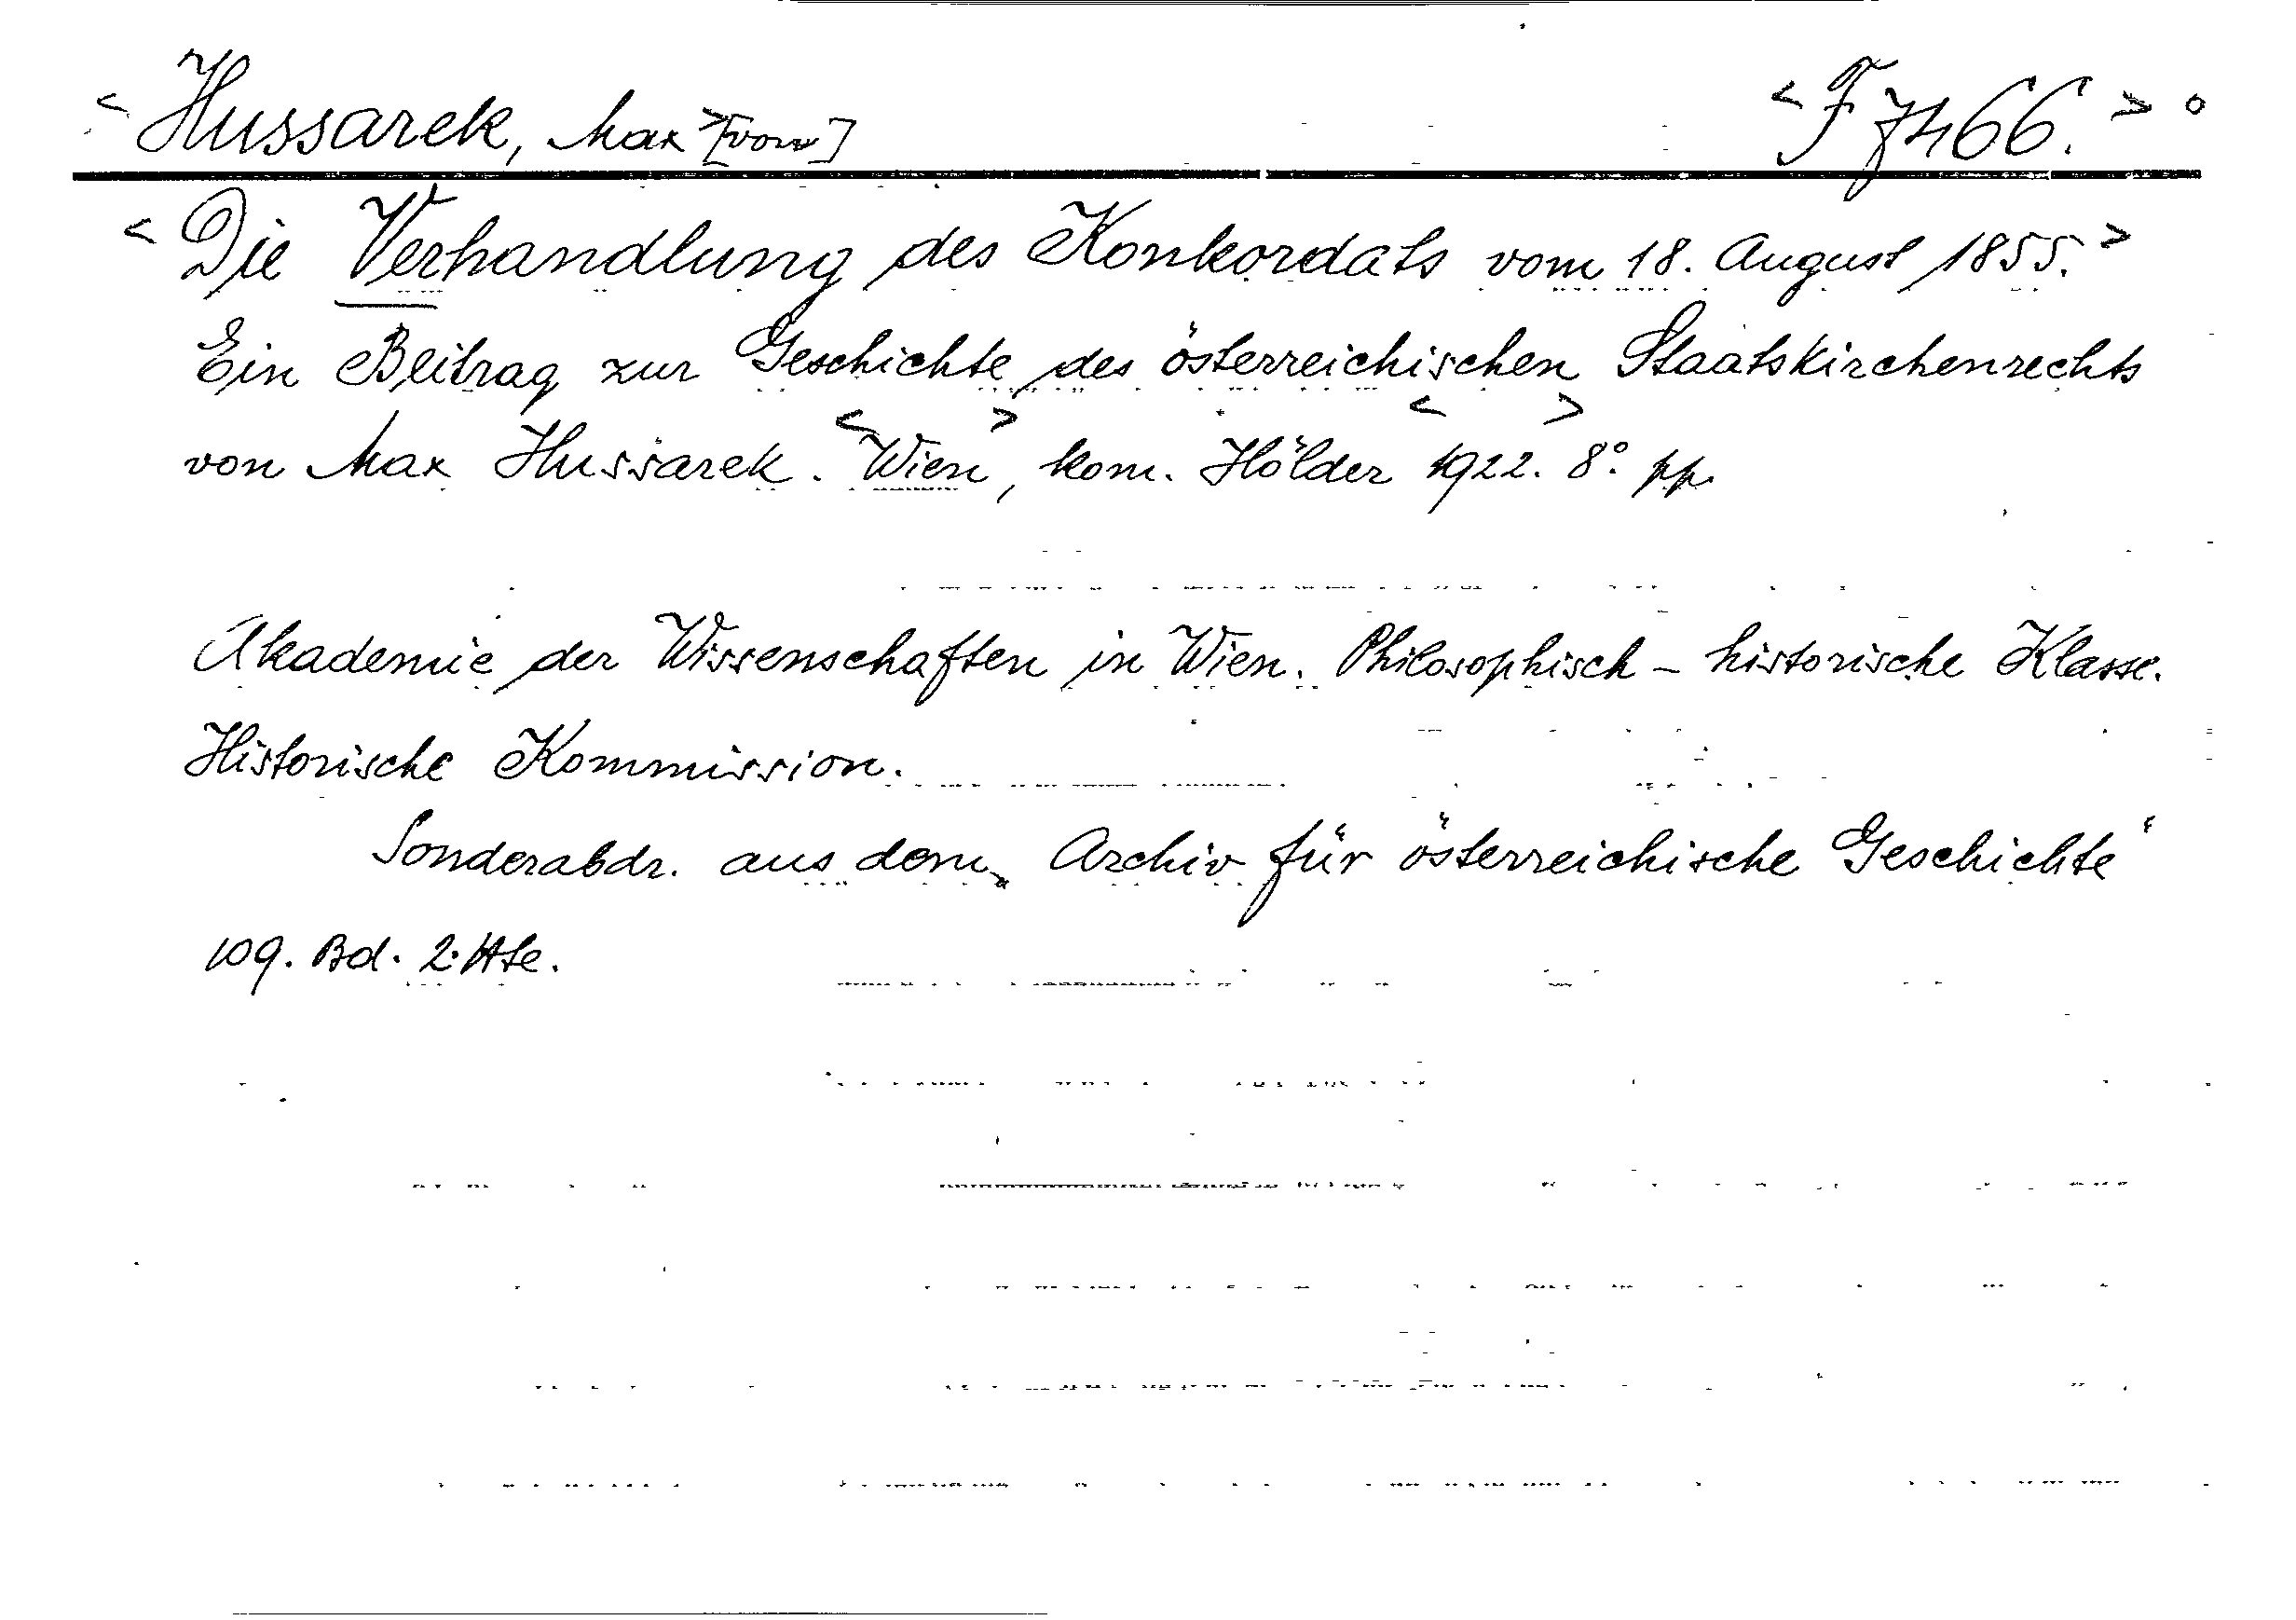 <Hussarek, Max> [von] <F 7466.> °
<Die Verhandlung des Konkordats vom 18. August 1855.>
Ein Beitrag zur Geschichte des österreichischen Staatskirchenrechts
von Max Hussarek. <Wien>, kom. Hölder <1922>. 8°. pp.
Akademie der Wissenschaften in Wien. Philosophisch-historische Klasse.
Historische Kommission.
Sonderabdr. aus dem „Archiv für österreichische Geschichte“
109. Bd. 2. Hfte.